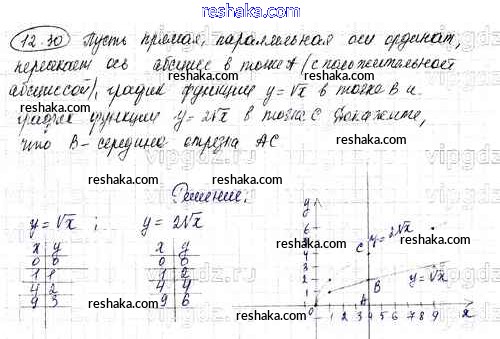 reshaka.com
12.30 Пусть прямая, параллельная оси ординат,
пересекает ось абсцисс в точке А (с положительной
абсциссой), график функции y = √x в точке В и
график функции y = 2√x в точке С. Докажите,
что В - середина отрезка АС
reshaka.com
Решение:
y = √x ; y = 2√x
x y
0 0
1 1
4 2
9 3
x y
0 0
1 2
4 4
9 6
y
6
5
4
3
2
1
C
y = 2√x
y = √x
A
B
1 2 3 4 5 6 7 8 9 x
reshaka.com
reshaka.com
reshaka.com
reshaka.com
reshaka.com
reshaka.com